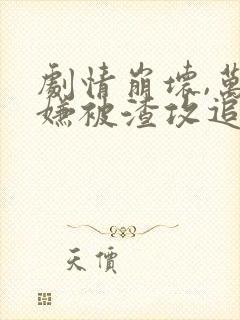 劇情崩壞,萬
嫌被渣攻追
天價